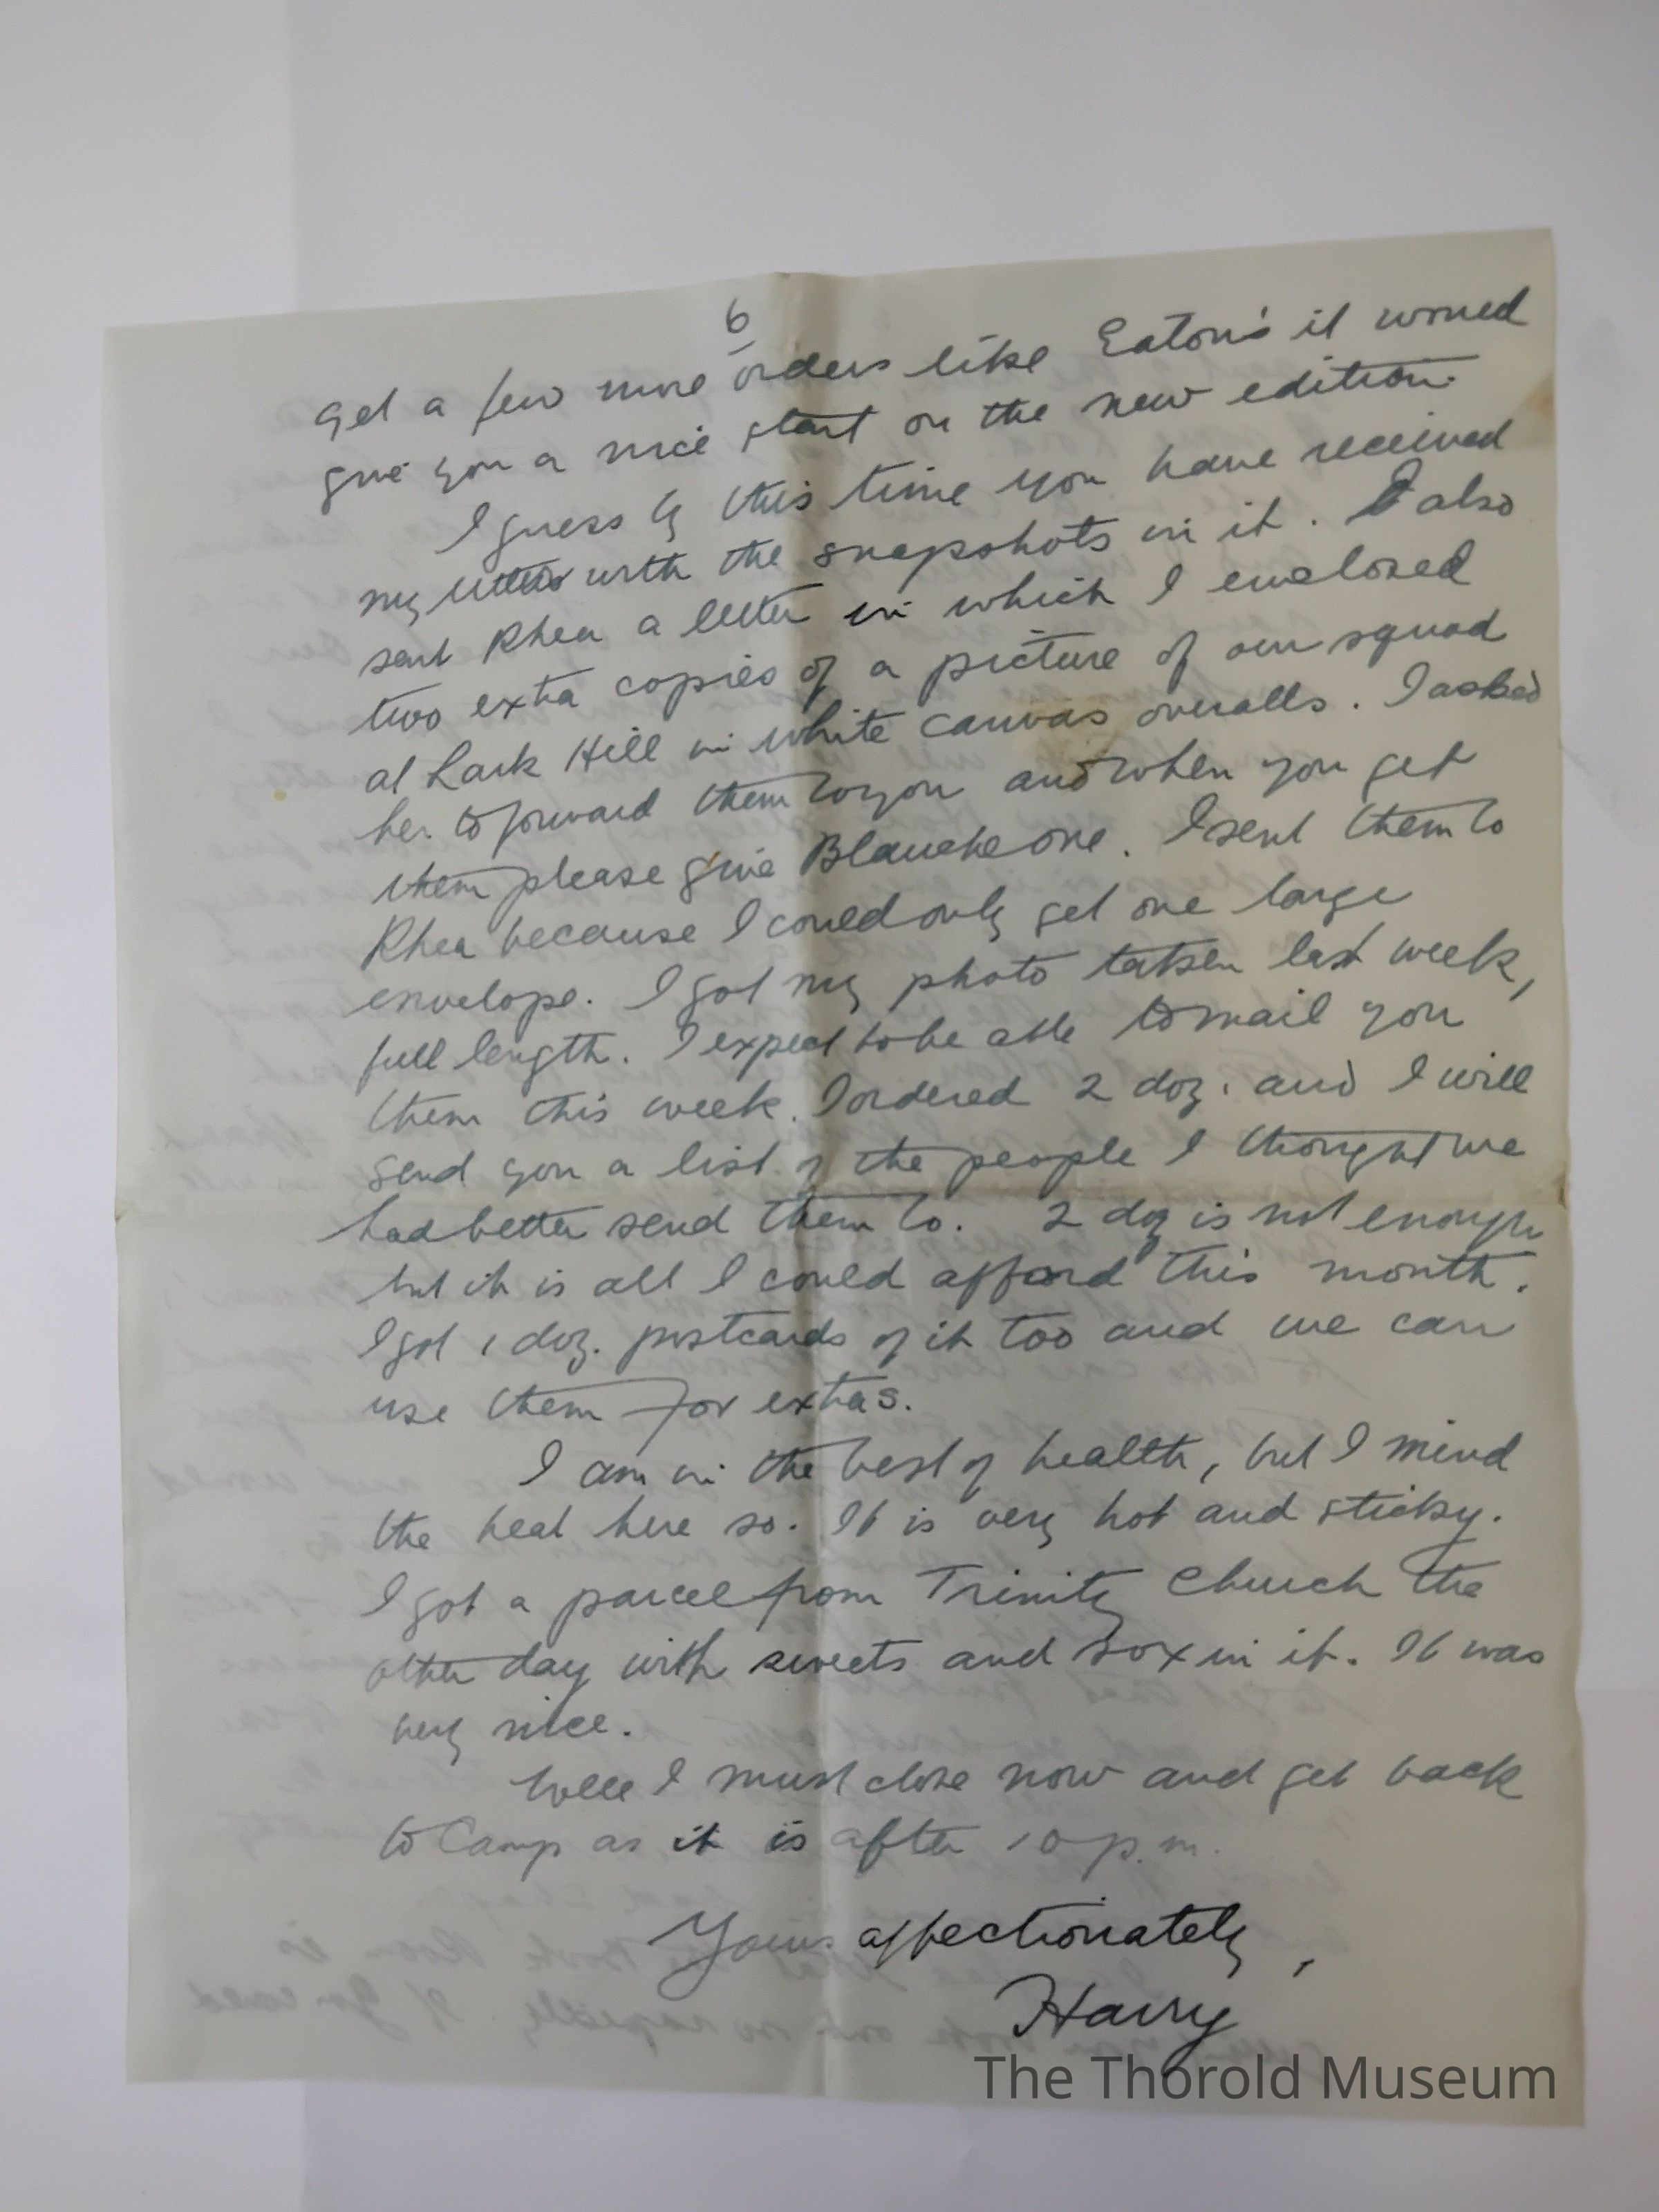 6
get a few more orders like Eaton's it would
give you a nice start on the new edition.
I guess by this time you have received
my letter with the snapshots in it. I also
sent Rhea a letter in which I enclosed
two extra copies of a picture of our squad
at Lark Hill in white canvas overalls. I asked
her to forward them to you and when you get
them please give Blanche one. I sent them to
Rhea because I could only get one large
envelope. I got my photo taken last week,
full length. I expect to be able to mail you
them this week. I ordered 2 doz. and I will
send you a list of the people I thought we
had better send them to. 2 doz is not enough
but it is all I could afford this month.
I got 1 doz. postcards of it too and we can
use them for extras.
I am in the best of health, but I mind
the heat here so. It is very hot and sticky.
I got a parcel from Trinity Church the
other day with sweets and sox in it. It was
very nice.
Well I must close now and get back
to Camp as it is after 10 p.m.
Yours affectionately,
Harry
The Thorold Museum